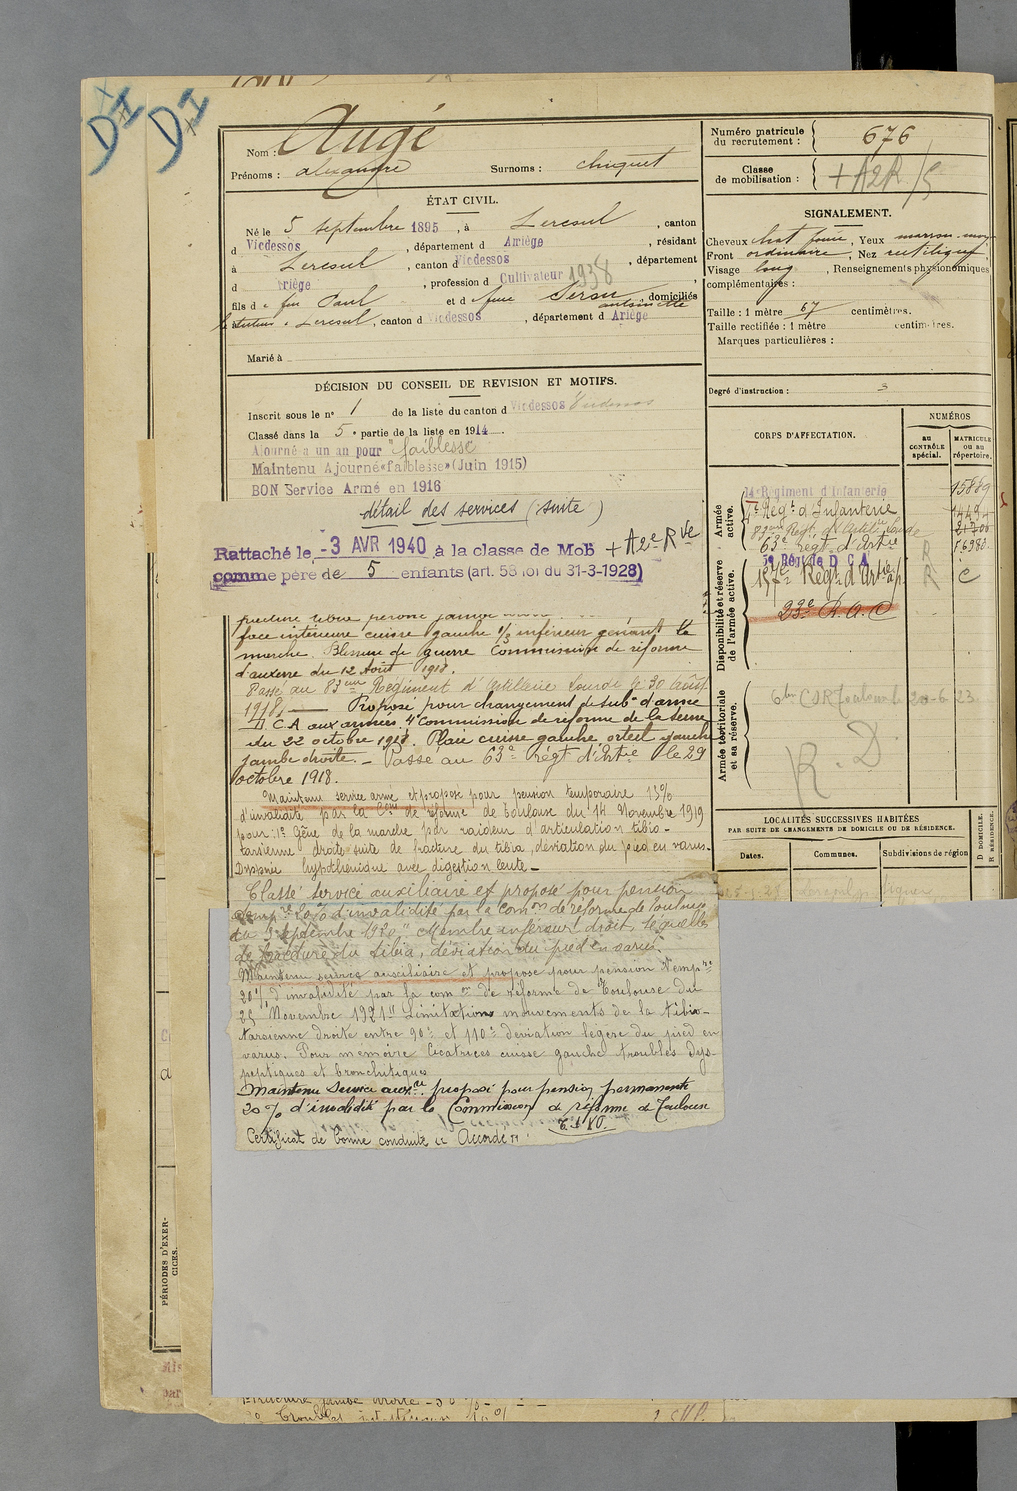 DI DI
Nom : Augé
Prénoms : alexandre Surnoms : chiquet
ÉTAT CIVIL.
Né le 5 septembre 1895, à Lercoul, canton
d Vicdessos, département d Ariège, résidant
à Lercoul, canton d Vicdessos, département
d Ariège, profession d Cultivateur 1938
fils de feu Paul et de feue antoinette domiciliés
à Lercoul, canton d Vicdessos, département d Ariège
Marié à
DÉCISION DU CONSEIL DE REVISION ET MOTIFS.
Inscrit sous le n° 1 de la liste du canton d Vicdessos
Classé dans la 5e partie de la liste en 1914.
Ajourné a un an pour "faiblesse"
Maintenu Ajourné «faiblesse» (Juin 1915)
BON Service Armé en 1916
détail des services (suite)
Rattaché le -3 AVR 1940 à la classe de Mob + A2e Rve
comme père de 5 enfants (art. 58 loi du 31-3-1928)
face intérieure cuisse gauche 1/3 inférieur gênant la
marche. Blessure de guerre Commission de réforme
d'auxerre du 12 Août 1918.
Passé au 83eme Regiment d'Artillerie Lourde le 30 Août
1918, — Proposé pour changement de subon d'arme
D C A aux armées 4e Commission de réforme de la Seine
du 22 octobre 1918. Plaie cuisse gauche, orteil gauche
jambe droite. — Passé au 63e régt d'Artie le 29
octobre 1918.
Maintenu service armé et proposé pour pension temporaire 15%
d'invalidité par la Con de réforme de Toulouse du 14 Novembre 1919
pour : 1° Gêne de la marche par raideur d'articulation tibio-
tarsienne droite suite de fracture du tibia, déviation du pied en varus.
Dyspepsie hyposthenique avec digestion lente —
Classé service auxiliaire et proposé pour pension
tempre 20% d'invalidité par la Comon de réforme de Toulouse
du 9 septembre 1920 "Membre inférieur droit, séquelles
de fracture du tibia, déviation du pied en varus
Maintenu service auxiliaire et proposé pour pension Tempre
20% d'invalidité par la comon de réforme de Toulouse du
25 Novembre 1921 "Limitation mouvements de la tibio-
tarsienne droite entre 90° et 110° déviation légère du pied en
varus. Pour mémoire Cicatrices cuisse gauche troubles dys-
peptiques et bronchitiques
Maintenu Service auxre proposé pour pension permanente
20% d'invalidité par la Commission de réforme de Toulouse
Certificat de bonne conduite "Accordé"
Fracture jambe droite
Numéro matricule
du recrutement : 676
Classe
de mobilisation : + A2R /5
SIGNALEMENT.
Cheveux chat foncé, Yeux marron moy
Front ordinaire, Nez rectiligne
Visage long, Renseignements physionomiques
complémentaires :
Taille : 1 mètre 67 centimètres.
Taille rectifiée : 1 mètre centimètres.
Marques particulières :
Degré d'instruction : 3
CORPS D'AFFECTATION.
NUMÉROS
AU CONTRÔLE spécial.
MATRICULE OU AU répertoire.
Armée active.
14e Régiment d'Infanterie 15889
7e Régt d'Infanterie
83eme Régt d'Artilrie Lourde
63e régt d'Artie R
Disponibilité et réserve de l'armée active.
5e Régt de D C A
157e Régt d'Artie a/p R C
23e R.A.C
Armée territoriale et sa réserve.
R. D
LOCALITÉS SUCCESSIVES HABITÉES
PAR SUITE DE CHANGEMENTS DE DOMICILE OU DE RÉSIDENCE.
Dates. Communes. Subdivisions de région
D DOMICILE.
R RÉSIDENCE.
PÉRIODES D'EXER-
CICES.